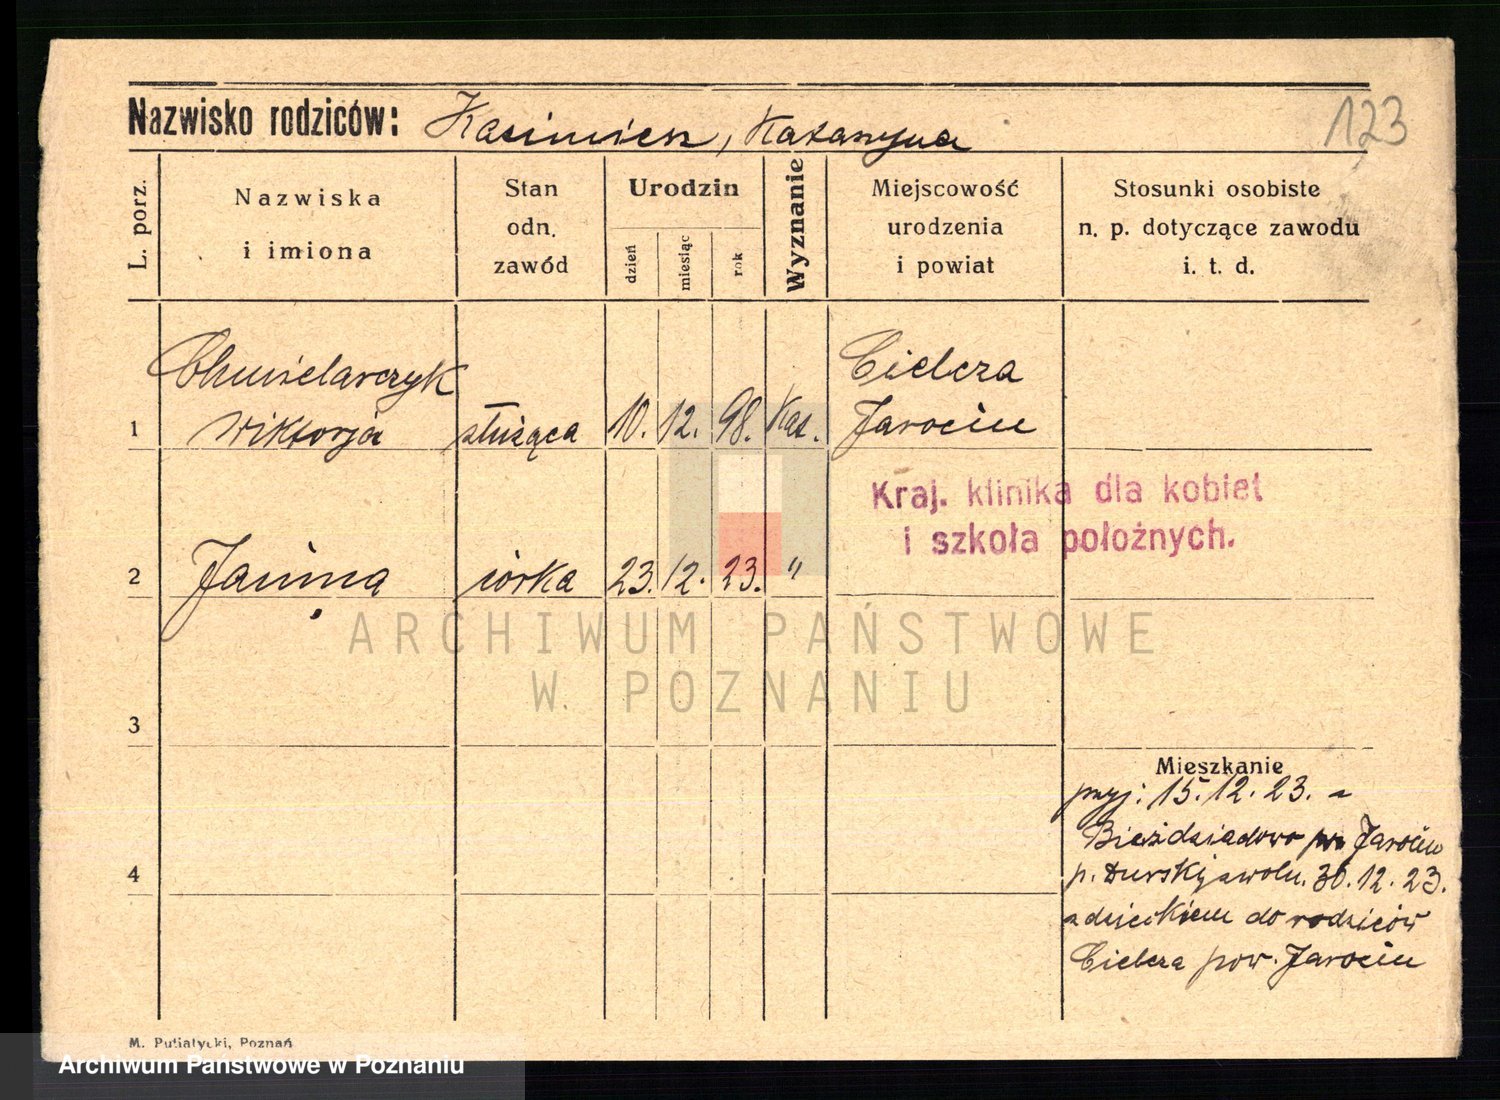 Nazwisko rodziców: Kasimierz, Katarzyna
123
L. porz.
Nazwiska
i imiona
Stan
odn.
zawód
Urodzin
dzień
miesiąc
rok
Wyznanie
Miejscowość
urodzenia
i powiat
Stosunki osobiste
n. p. dotyczące zawodu
i. t. d.
Chmielarczyk
Cielcza
1 Wiktorja służąca 10. 12. 98. Kat. Jarocin
Kraj. klinika dla kobiet
i szkoła położnych.
2 Janina córka 23. 12. 23. "
ARCHIWUM PAŃSTWOWE
W POZNANIU
3
Mieszkanie
przyj: 15.12.23. z
Bieździadowo Jarocin
p. 30.12.23.
z dzieckiem do rodziców
Cielcza pow. Jarocin
4
M. Putiatycki, Poznań
Archiwum Państwowe w Poznaniu